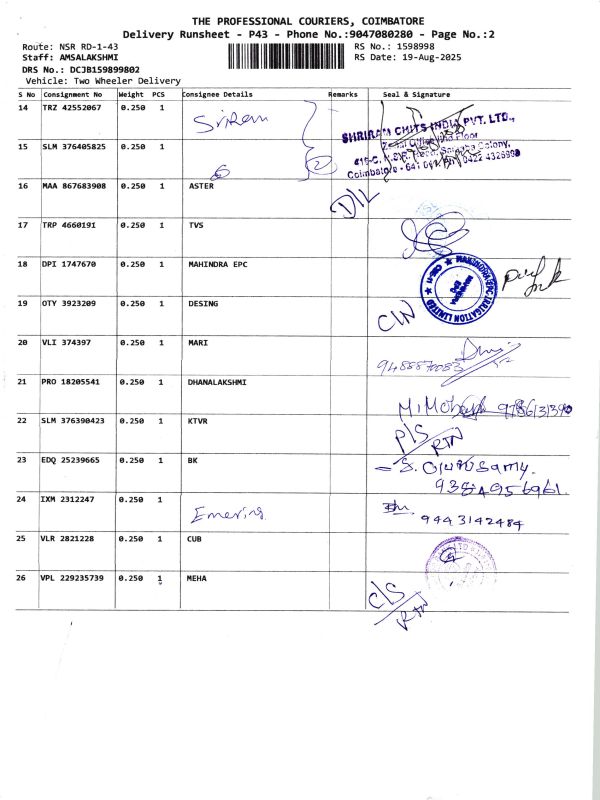 THE PROFESSIONAL COURIERS, COIMBATORE
Delivery Runsheet - P43 - Phone No.:9047080280 - Page No.:2
Route: NSR RD-1-43
RS No.: 1598998
Staff: AMSALAKSHMI
RS Date: 19-Aug-2025
DRS No.: DCJB159899802
Vehicle: Two Wheeler Delivery
S No Consignment No Weight PCS Consignee Details Remarks Seal & Signature
14 TRZ 42552067 0.250 1 Sriram
SHRIRAM CHITS INDIA PVT. LTD.,
15 SLM 376405825 0.250 1 2
Coimbatore - 641 0422 4326993
16 MAA 867683908 0.250 1 ASTER D/L
17 TRP 4660191 0.250 1 TVS
18 DPI 1747670 0.250 1 MAHINDRA EPC
MAHINDRA EPC IRRIGATION LIMITED
19 OTY 3923209 0.250 1 DESING C/N
20 VLI 374397 0.250 1 MARI
9488870083
21 PRO 18205541 0.250 1 DHANALAKSHMI
22 SLM 376390423 0.250 1 KTVR P/S RTN
23 EDQ 25239665 0.250 1 BK
24 IXM 2312247 0.250 1
9443142484
25 VLR 2821228 0.250 1 CUB
26 VPL 229235739 0.250 1 MEHA C/S RTN